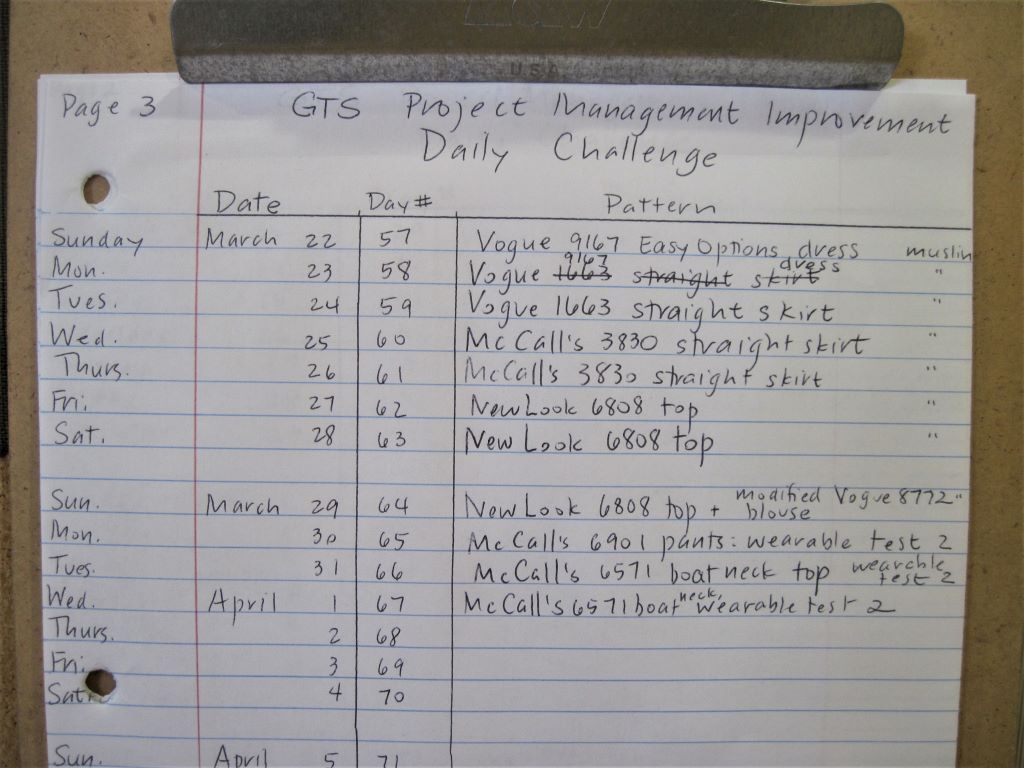 USA
Page 3 GTS Project Management Improvement
Daily Challenge
Date Day # Pattern
Sunday March 22 57 Vogue 9167 Easy Options dress muslin
Mon. 23 58 Vogue 1663 9167 straight skirt dress "
Tues. 24 59 Vogue 1663 straight skirt "
Wed. 25 60 McCall's 3830 straight skirt "
Thurs. 26 61 McCall's 3830 straight skirt "
Fri. 27 62 New Look 6808 top "
Sat. 28 63 New Look 6808 top "
Sun. March 29 64 New Look 6808 top + modified Vogue 8772 blouse "
Mon. 30 65 McCall's 6901 pants: wearable test 2
Tues. 31 66 McCall's 6571 boat neck top wearable test 2
Wed. April 1 67 McCall's 6571 boat neck, wearable test 2
Thurs. 2 68
Fri. 3 69
Sat. 4 70
Sun. April 5 71